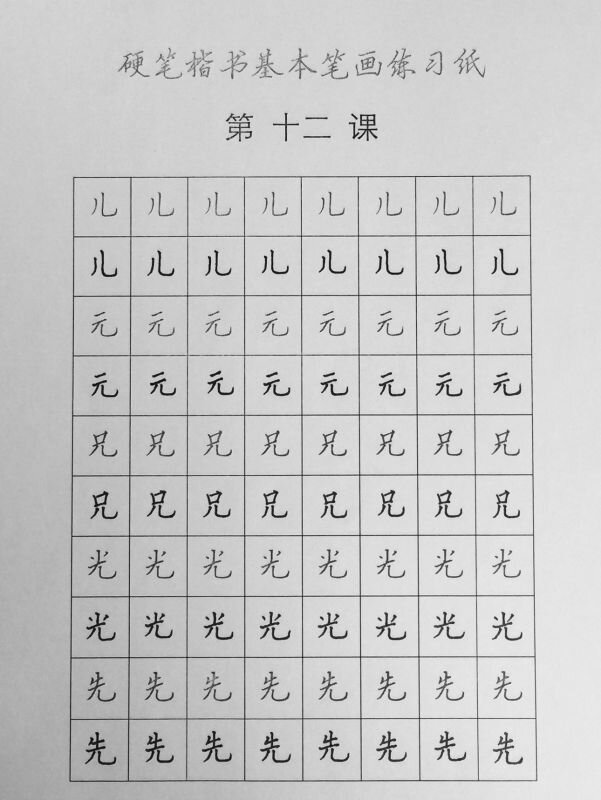 硬笔楷书基本笔画练习纸
第 十二 课
儿 儿 儿 儿 儿 儿 儿 儿
儿 儿 儿 儿 儿 儿 儿 儿
元 元 元 元 元 元 元 元
元 元 元 元 元 元 元 元
兄 兄 兄 兄 兄 兄 兄 兄
兄 兄 兄 兄 兄 兄 兄 兄
光 光 光 光 光 光 光 光
光 光 光 光 光 光 光 光
先 先 先 先 先 先 先 先
先 先 先 先 先 先 先 先